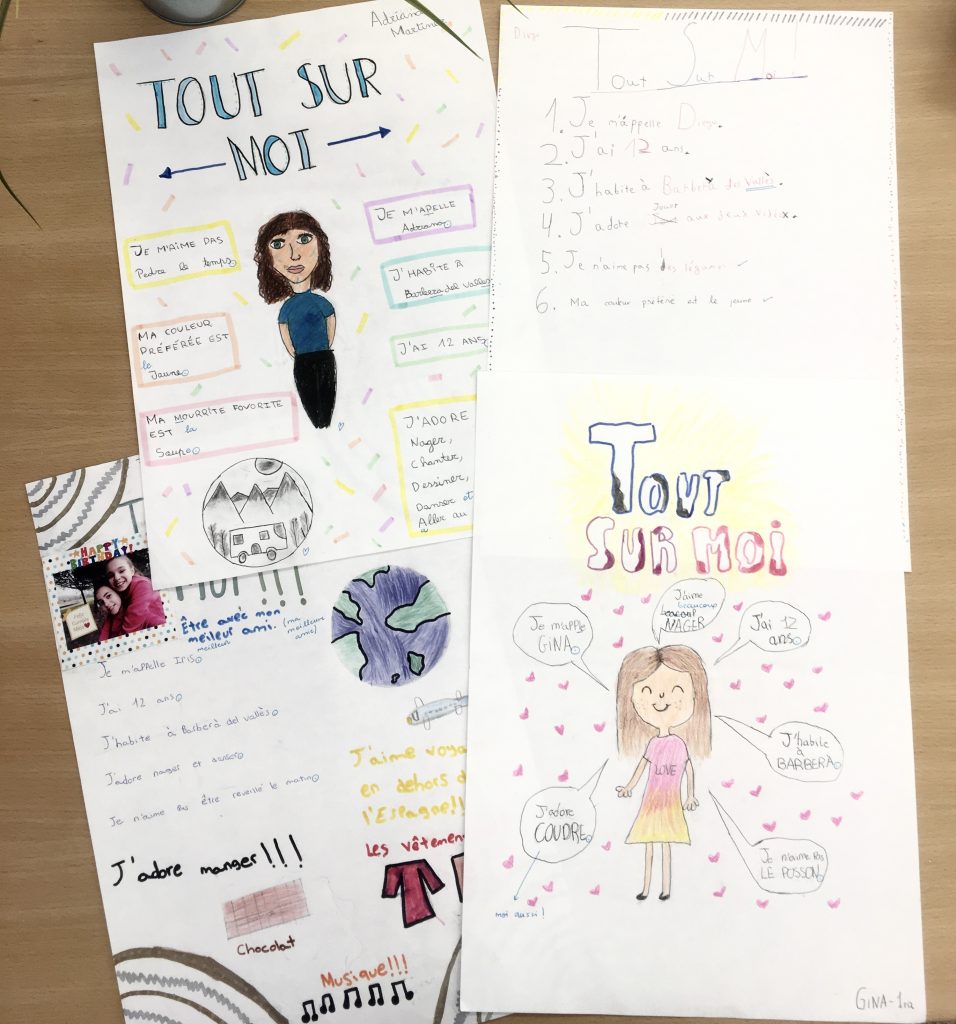 Adriana
Martinez
TOUT SUR
MOI
JE M'AIME PAS
Pedre le temps
MA COULEUR
PRÉFÉRÉE EST
le
Jaune
MA MOURRITE FAVORITE
EST la
Soupe
JE M'APELLE
Adriana
J'HABITE À
Barbera del vallès
J'AI 12 ANS
J'ADORE
Nager,
Chanter,
Dessiner,
Danser et
Aller au
à
Diego
Tout Sur Moi
1. Je m'appelle Diego.
2. J'ai 12 ans.
3. J'habite à Barberà des Vallès.
4. J'adore Jouer aux jeux vidéox.
5. Je n'aime pas les légumes
6. Ma couleur préféré est le jaune
T
MOI!!!
HAPPY
BIRTHDAY!
Être avec mon
meileur ami. (ma
meilleure
amie)
meilleur
Je m'appelle Iris
J'ai 12 ans
J'habite à Barberà del vallès
J'adore nager et danser
Je n'aime pas être reveillé le matin
J'aime voya
en dehors d
l'Espagne!!
J'adore manger!!!
Chocolat
Les vêtemen
Musique!!!
TOUT
SUR MOI
Je m'apple
GiNA
J'aime
beaucoup
beacoup
NAGER
J'ai 12
ans
J'habite
à
BARBERA
J'adore
COUDRE
moi aussi!
Je n'aime pas
LE POSSON
LOVE
GiNA-1ra